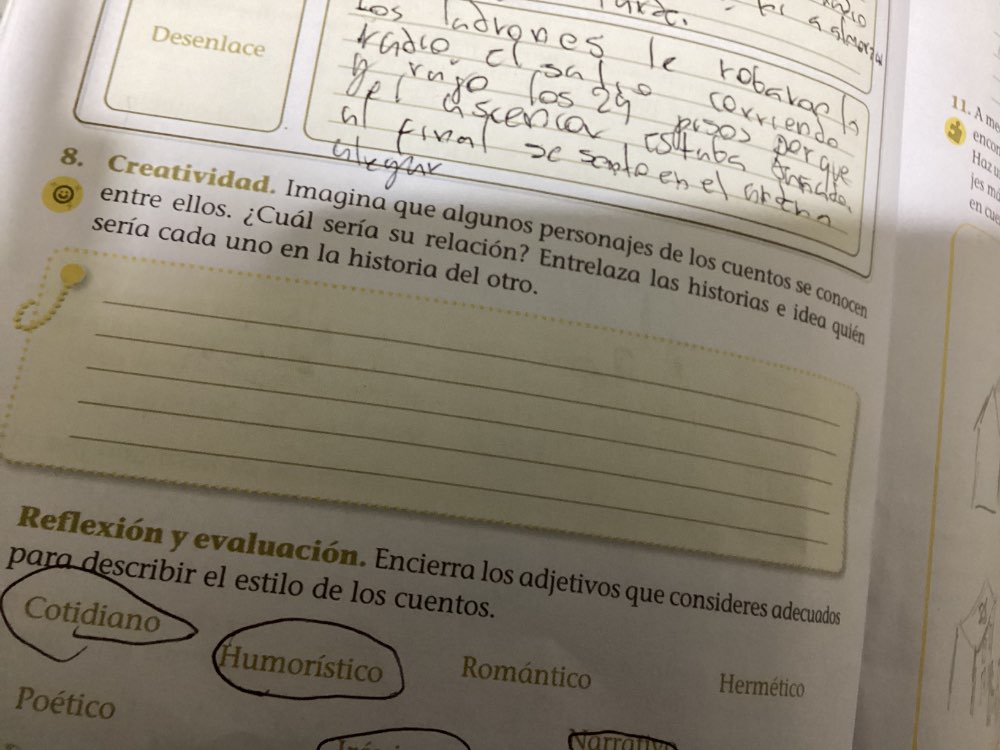 Desenlace
Los ladrones le robaron la
radio el salio corriendo
y rajo los 24 pisos porque
el ascensor estaba
al final se sento en el
8. Creatividad. Imagina que algunos personajes de los cuentos se conocen
entre ellos. ¿Cuál sería su relación? Entrelaza las historias e idea quién
sería cada uno en la historia del otro.
Reflexión y evaluación. Encierra los adjetivos que consideres adecuados
para describir el estilo de los cuentos.
Cotidiano
Humorístico
Romántico
Hermético
Poético
Narrativo
11. A me
encon
Haz u
jes m
en cu